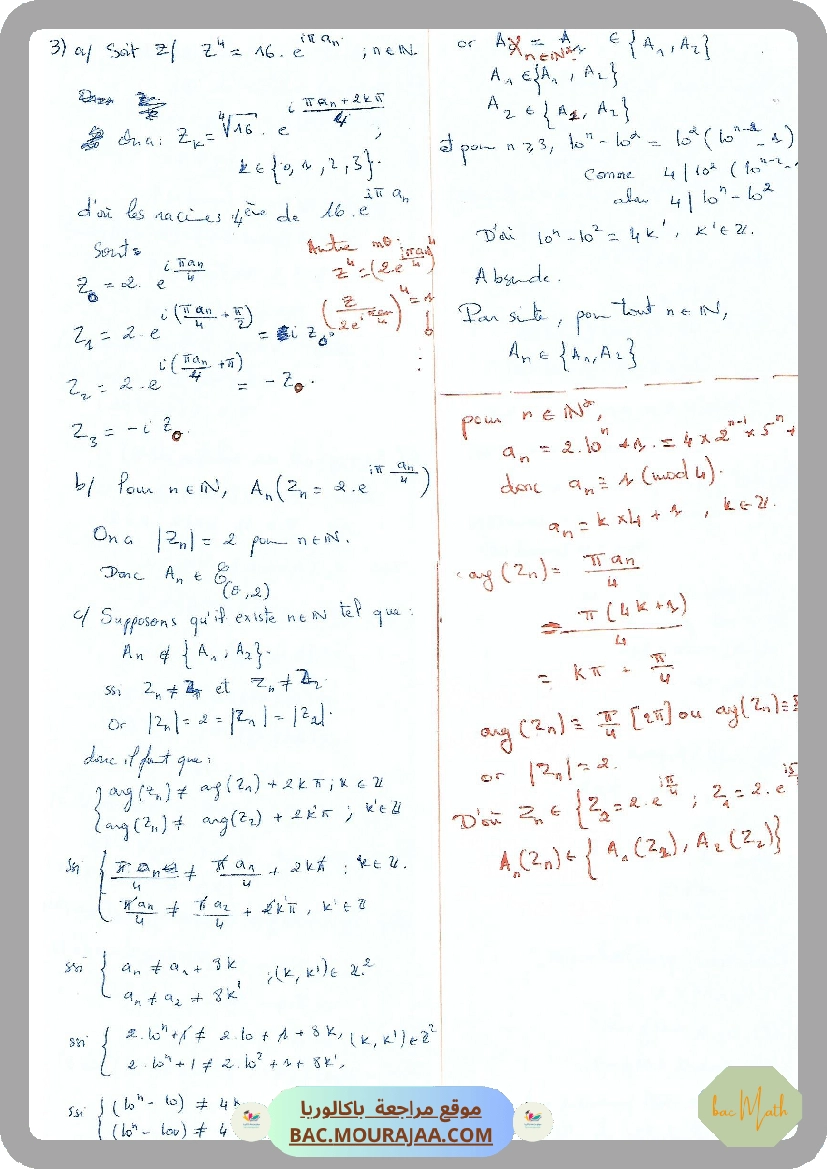 3) a/ Soit z / z^4 = 16 . e^{iπ a_n} ; n ∈ ℕ.
On a : Z_k = ⁴√16 . e^{i (π a_n + 2kπ)/4} ;
k ∈ {0, 1, 2, 3}.
d'où les racines 4ème de 16 . e^{iπ a_n}
sont :
Z_0 = 2 . e^{i π a_n/4}
Z_1 = 2 . e^{i (π a_n/4 + π/2)} = i Z_0.
Z_2 = 2 . e^{i (π a_n/4 + π)} = - Z_0.
Z_3 = - i Z_0.
Autre
z^4 = (2 . e^{iπ a_n/4})^4
(z / 2e^{iπ a_n/4})^4 = 1
b/ Pour n ∈ ℕ, A_n (Z_n = 2 . e^{iπ a_n/4})
On a |Z_n| = 2 pour n ∈ ℕ.
Donc A_n ∈ 𝒞_(0, 2)
c/ Supposons qu'il existe n ∈ ℕ tel que :
A_n ∉ {A_1, A_2}.
ssi Z_n ≠ Z_1 et Z_n ≠ Z_2
Or |Z_n| = 2 = |Z_1| = |Z_2|.
donc il faut que :
{ arg(Z_n) ≠ arg(Z_1) + 2kπ ; k ∈ ℤ
{ arg(Z_n) ≠ arg(Z_2) + 2k'π ; k' ∈ ℤ
ssi { π a_n/4 ≠ π a_1/4 + 2kπ ; k ∈ ℤ.
{ π a_n/4 ≠ π a_2/4 + 2k'π, k' ∈ ℤ
ssi { a_n ≠ a_1 + 8k
{ a_n ≠ a_2 + 8k' ; (k, k') ∈ ℤ²
ssi { 2.10^n + 1 ≠ 2.10 + 1 + 8k, (k, k') ∈ ℤ²
{ 2.10^n + 1 ≠ 2.10² + 1 + 8k',
ssi { (10^n - 10) ≠ 4k
{ (10^n - 100) ≠ 4
or ∈ {A_1, A_2}
A_1 ∈ {A_1, A_2}
A_2 ∈ {A_1, A_2}
et pour n ≥ 3, 10^n - 10² = 10² (10^{n-2} - 1)
Comme 4 | 10² (10^{n-2} -
alors 4 | 10^n - 10²
D'où 10^n - 10² = 4k', k' ∈ ℤ.
Absurde.
Par suite, pour tout n ∈ ℕ,
A_n ∈ {A_1, A_2}
pour n ∈ ℕ*,
a_n = 2.10^n + 1 = 4 × 2^{n-1} × 5^n +
donc a_n ≡ 1 (mod 4).
a_n = k × 4 + 1, k ∈ ℤ.
arg(Z_n) = π a_n/4
= π(4k + 1)/4
= kπ + π/4
arg(Z_n) ≡ π/4 [2π] ou arg(Z_n) ≡
or |Z_n| = 2.
D'où Z_n ∈ {Z_2 = 2 . e^{iπ/4} ; Z_1 = 2 . e^{i5
A_n(Z_n) ∈ {A_1(Z_1), A_2(Z_2)}
موقع مراجعة باكالوريا
BAC.MOURAJAA.COM
bac Math